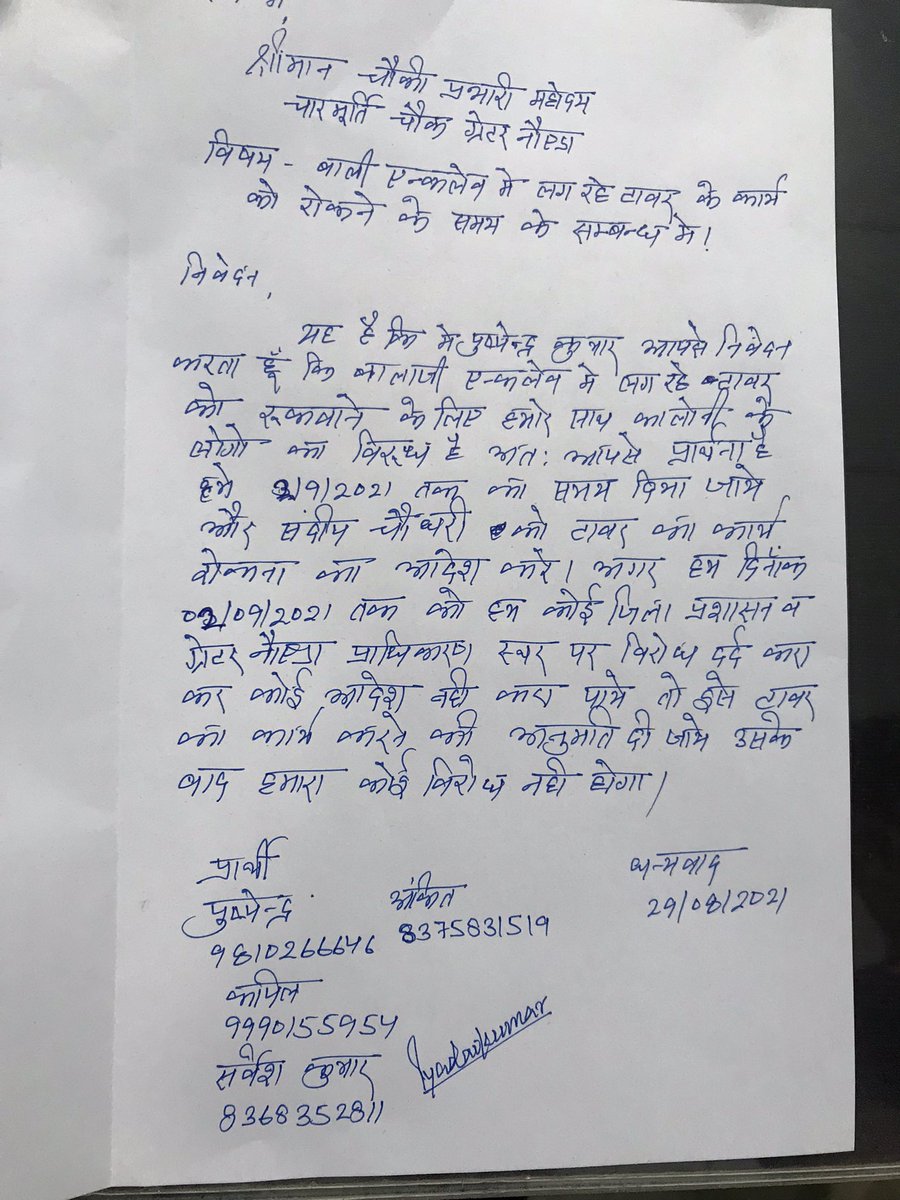 श्रीमान चौकी प्रभारी महोदय
चारमूर्ति चौक ग्रेटर नौएडा
विषय - बाली एन्कलेव मे लग रहे टावर के कार्य
को रोकने के समय के सम्बन्ध मे।
निवेदन,
यह है कि मे पुष्पेन्द्र कुमार आपसे निवेदन
करता हूँ कि बालाजी एन्कलेव मे लग रहे टावर
को रूकवाने के लिए हमारे साथ कालोनी के
लोगो का विरूध है अतः आपसे प्रार्थना है
हमे 2/9/2021 तक का समय दिया जाये
और संदीप चौधरी को टावर का कार्य
रोकना का आदेश करे। अगर हम दिनाँक
02/09/2021 तक को हम कोई जिला प्रशासन व
ग्रेटर नौएडा प्राधिकरण स्तर पर विरोध दर्द करा
कर कोई आदेश नही करा पाये तो इसे टावर
का कार्य करने की अनुमति दी जाये उसके
बाद हमारा कोई विरोध नही होगा।
प्रार्थी
धन्यवाद
पुष्पेन्द्र अंकित 29/08/2021
9810266646 8375831519
कपिल
9990155954
सर्वेश कुमार
8368352811